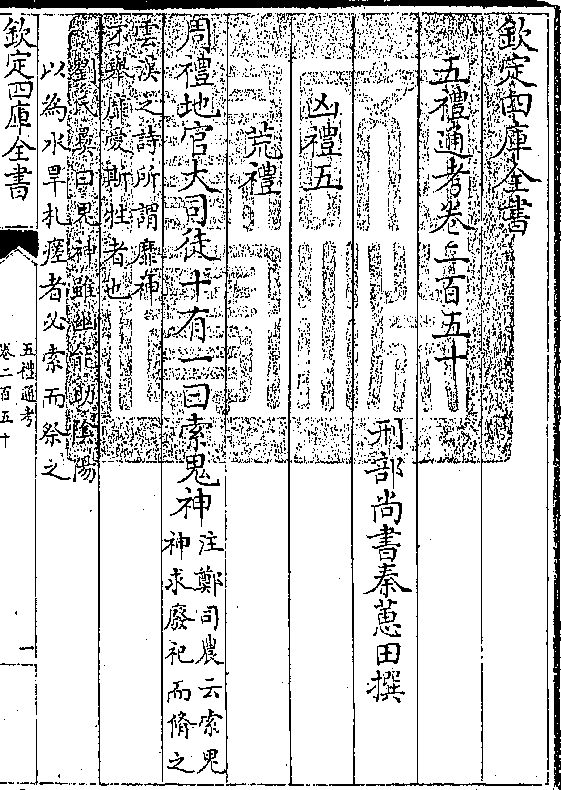 欽定四庫全書
五禮通考卷二百五十
刑部尚書秦蕙田撰
凶禮五
荒禮
周禮地官大司徒十有一曰索鬼神
注鄭司農云索鬼
神求廢祀而脩之
雲漢之詩所謂靡神
不舉靡愛斯牲者也
劉氏彛曰鬼神雖幽能助陰陽
以為水旱札瘥者必索而祭之
欽定四庫全書
五禮通考
卷二百五十
一